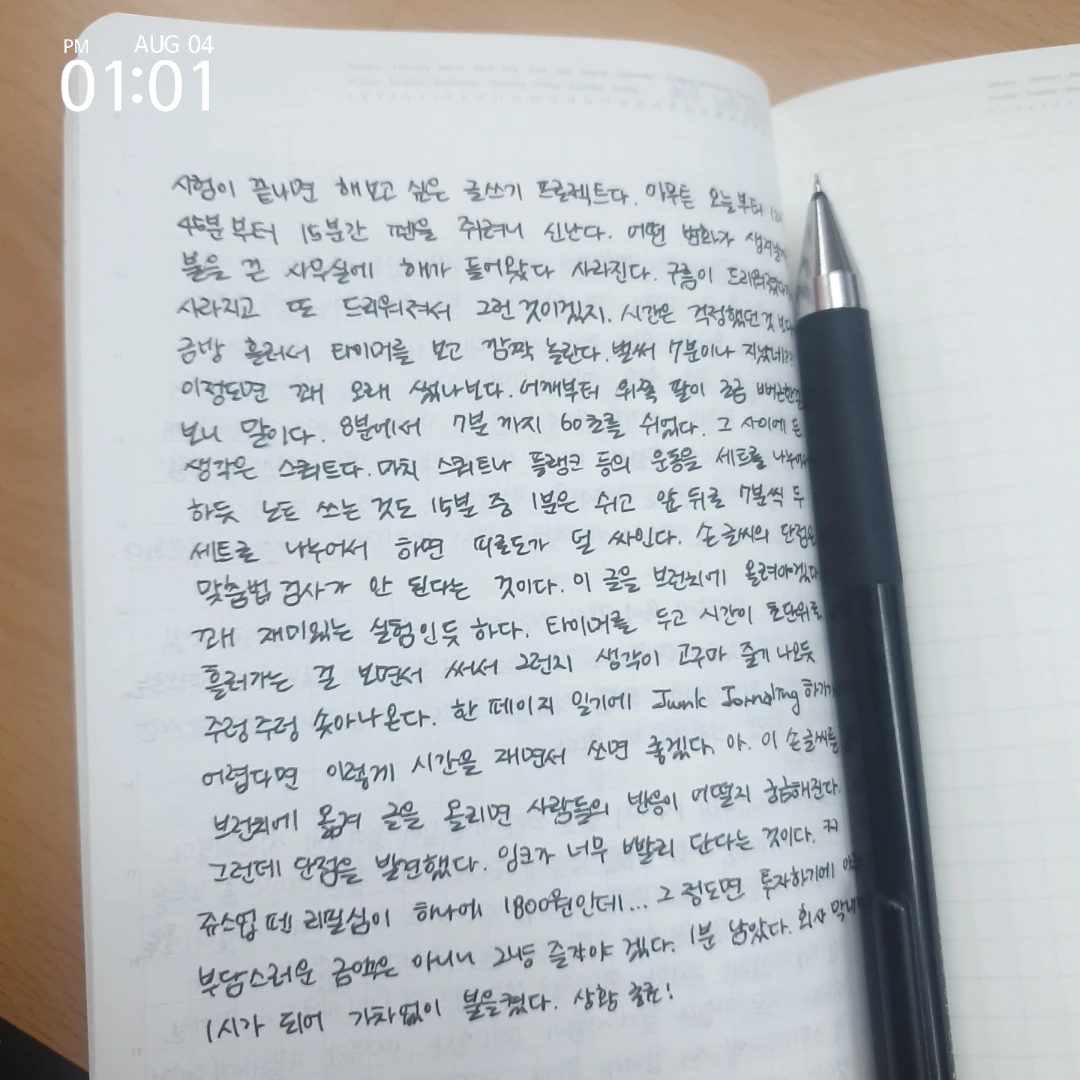 PM AUG 04
01:01
시험이 끝나면 해보고 싶은 글쓰기 프로젝트다. 아무튼 오늘부터
45분부터 15분간 펜을 쥐려니 신난다. 어떤 변화가
불을 끈 사무실에 해가 들어왔다 사라진다. 구름이
사라지고 또 드리워져서 그런 것이겠지. 시간은 걱정했던 것 보다
금방 흘러서 타이머를 보고 깜짝 놀란다. 벌써 7분이나
이정도면 꽤 오래 썼나보다. 어깨부터 위쪽 팔이 조금
보니 말이다. 8분에서 7분까지 60초를 쉬었다. 그 사이에 든
생각은 스쿼트다. 마치 스쿼트나 플랭크 등의 운동을 세트로
하듯 노트 쓰는 것도 15분 중 1분은 쉬고 앞 뒤로 7분씩 두
세트로 나누어서 하면 피로도가 덜 싸인다. 손글씨의 단점은
맞춤법 검사가 안 된다는 것이다. 이 글을 브런치에 올려야겠다
꽤 재미있는 실험인듯 하다. 타이머를 두고 시간이 초단위로
흘러가는 걸 보면서 써서 그런지 생각이 고구마 줄기 나오듯
주렁주렁 솟아나온다. 한 페이지 일기에 Junk
어렵다면 이렇게 시간을 재면서 쓰면 좋겠다. 아. 이 손글씨를
브런치에 옮겨 글을 올리면 사람들의 반응이 어떨지 궁금해진다.
그런데 단점을 발견했다. 잉크가 너무 빨리 단다는 것이다.
쥬스업 펜 리필심이 하나에 1800원인데... 그 정도면 투자하기에
부담스러운 금액은 아니니 즐겨야 겠다. 1분 남았다. 회사
1시가 되어 가차없이 불을켰다. 상황 종료!